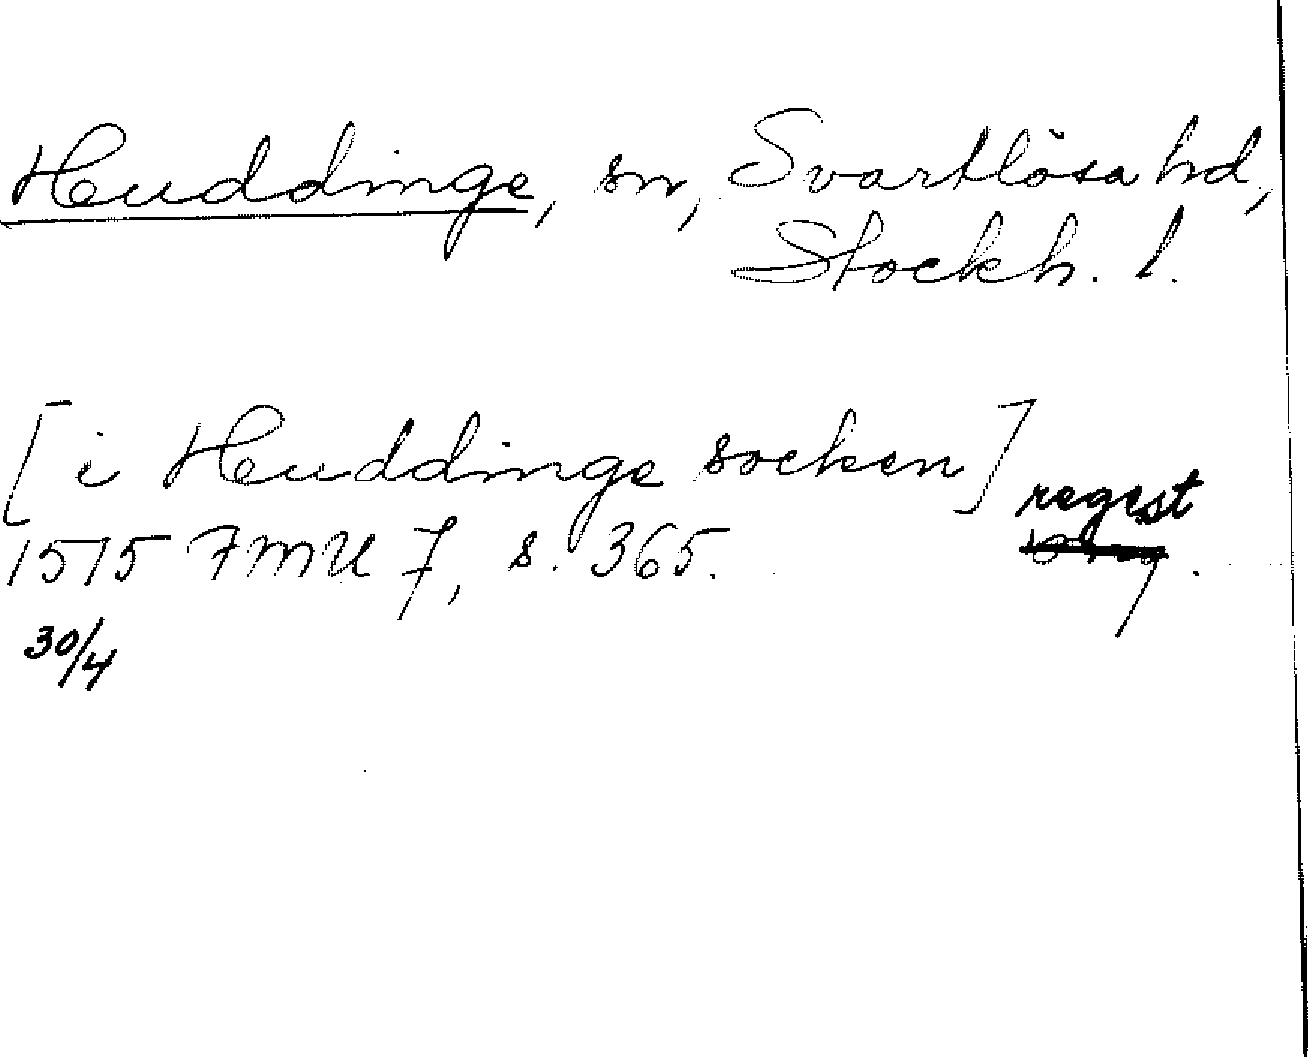 Huddinge, sn, Svartlösa hd,
Stockh. l.
[i Huddinge socken]
regest
1515 FMU 7, s. 365.
30/4